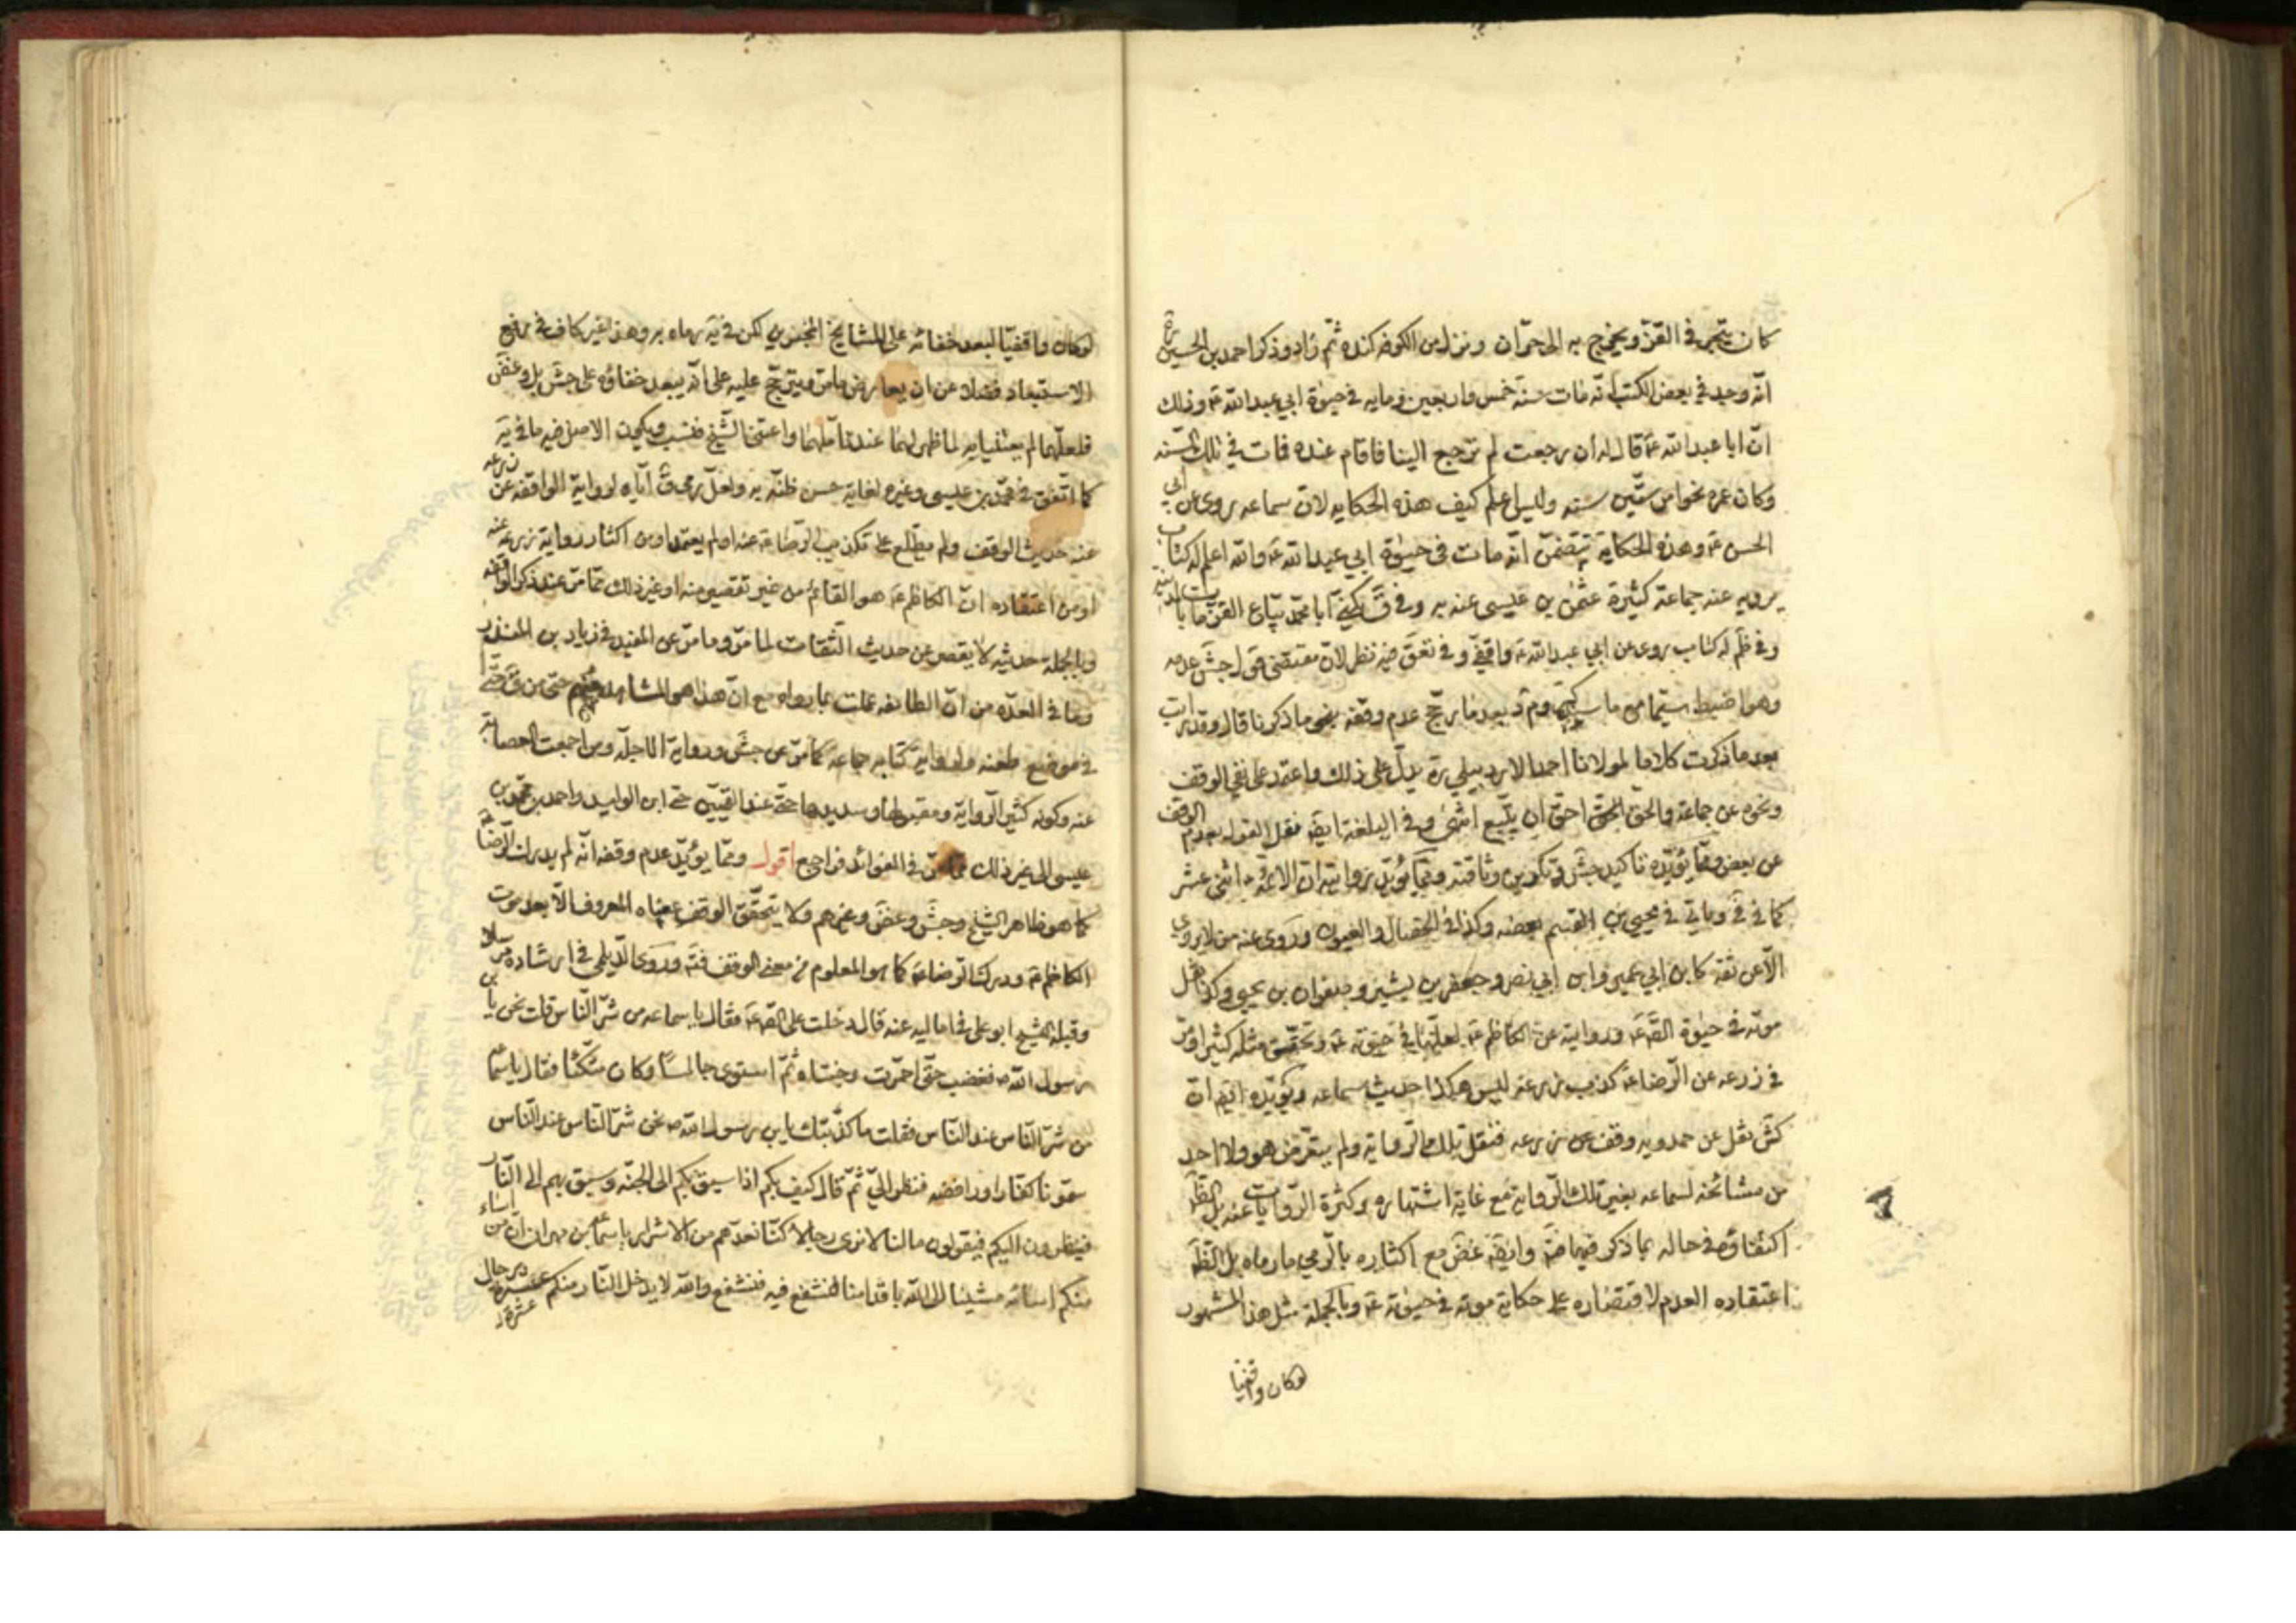 كان يتجر في القز ويخرج به الى حران ونزل من الكوفه كنده ثم زاد وذكر احمد بن الحسين ره
انه وجد في بعض الكتب انه مات سنة خمس واربعين ومايه في حيوة ابي عبد الله ع وذلك
ان ابا عبد الله ع قال له ان رجعت لم ترجع الينا فاقام عنده فمات في تلك السنه
وكان عمره نحوا من ستين سنه وليس اعلم كيف هذه الحكايه لان سماعه روى عن ابي
الحسن ع وهذه الحكاية تتضمن انه مات في حيوة ابي عبد الله ع والله اعلم له كتاب
يرويه عنه جماعة كثيرة عثمن بن عيسى عنه به وفي ق يكنى ابا محمد بياع القز مات بالمدينة
وفي ظم له كتاب روى عن ابي عبد الله ع واقفي وفي تعق فيه نظر لان مقتضى قول جش عدمه
وهو اضبط سيما مع ما سيجئ وم د بعد ما رجح عدم وقفه بنحو ما ذكرنا قال وقد رايت
بعد ما ذكرت كلاما لمولانا احمد الاردبيلي ره يدل على ذلك واعتمد على نفي الوقف
ونحوه عن جماعة والحق الحق احق ان يتبع انتهى وفي البلغة ايضه نقل القول بعدم الوقف
عن بعض ومما يؤيده تاكيد جش وتكريره وثاقته ومما يؤيد روايته ان الائمة ع اثنى عشر
كما في في وياتي في يحيى بن القسم بعضه وكذا في الخصال والعيون وروى عنه من لا يروي
الا عن ثقة كابن ابي عمير وابن ابي نصر وجعفر بن بشير وصفوان بن يحيى وكذا نقل
موته في حيوة الص ع وروايته عن الكاظم ع لعلها في حيوته ع وتحقق مثله كثيرا ومر
في زرعه عن الرضا ع كذب زرعه ليس هكذا حديث سماعه ويؤيده ايضه ان
كش نقل عن حمدويه وقف عن زرعه فنقل تلك الرواية ولم يتعرض هو ولا احد
من مشائخه لسماعه بغير تلك الرواية مع غاية اشتهاره وكثرة الروايات عنه بل الظ
اكتفاؤه في حاله بما ذكر فيها فت وايضه غض مع اكثاره بالرمي ما رماه بل الظ
اعتقاده العدم لاقتصاره على حكاية موته في حيوته ع وبالجملة مثل هذا المشهور
لو كان واقفيا
لو كان واقفيا لبعد خفائه على المشايخ لكن في يه رماه به وهذا غير كاف في رفع
الاستبعاد فضلا عن ان يعارض ما مر ويترجح عليه على انه يبعد خفاؤه على جش بل وغض
فلعلهما لم يعتنيا به لما ظهر لهما عند تاملهما واعتنى الشيخ فنسب ويكون الاصل فيه ما في يه
كما اتفق في محمد بن عيسى وغيره لغاية حسن ظنه به ولعل رمي ق اياه لرواية الواقفه عن زرعه
عنه حديث الوقف ولم يطلع على تكذيب الرضا ع عنه او لم يعتمد او من اكثار رواية زرعه عنه
او من اعتقاده ان الكاظم ع هو القائم من غير تقصير منه او غير ذلك مما مر عند ذكر الواقفه
وبالجملة حديثه لا يقصر عن حديث الثقات لما مر وما مر عن المفيد في زياد بن المنذر
وما في العده من ان الطايفه عملت بما رواه مع ان هذا هو المشاهد منهم حتى من ق حتى
في موضع طعنه ولرواية كتابه جماعة كما مر عن جش ورواية الاجلة ومن اجمعت العصابة
عنه وكونه كثير الرواية ومقبولها وسديدها حتى عند القميين حتى ابن الوليد واحمد بن محمد بن
عيسى الى غير ذلك مما مر في الفوائد فراجع اقول ومما يؤيد عدم وقفه انه لم يدرك الرضا ع
كما هو ظاهر الشيخ وجش وغض وغيرهم ولا يتحقق الوقف بمعناه المعروف الا بعد موت
الكاظم ع ودرك الرضا ع كما هو المعلوم من معنى الوقف فته وروى الديلمي في ارشاده مرسلا
وقبله الشيخ ابو علي في اماليه عنه قال دخلت على الص ع فقال يا سماعه من شر الناس قلت نحن يا بن
رسول الله ص فغضب حتى احمرت وجنتاه ثم استوى جالسا وكان متكئا فقال يا سماعه
من شر الناس عند الناس فقلت ما كذبتك يا بن رسول الله ص نحن شر الناس عند الناس
سمونا كفارا ورافضه فنظر الي ثم قال كيف بكم اذا سيق بكم الى الجنه وسيق بهم الى النار
فينظرون اليكم فيقولون ما لنا لا نرى رجالا كنا نعدهم من الاشرار يا سماعه بن مهران ان من اساء
منكم اسائه مشينا الى الله باقدامنا فنشفع فيه فنشفع والله لا يدخل النار منكم عشرة رجال